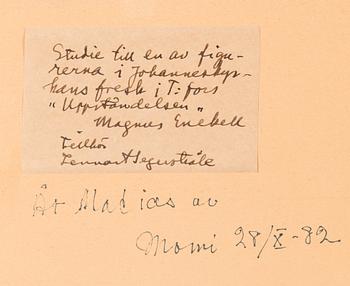 Studie till en av figu-
rerna i Johanneskyr-
kans fresk i T:fors
"Uppståndelsen"
Magnus Enckell
Tillhör
Lennart Segerstråle
Åt Matias av
Mommi 28/X-82